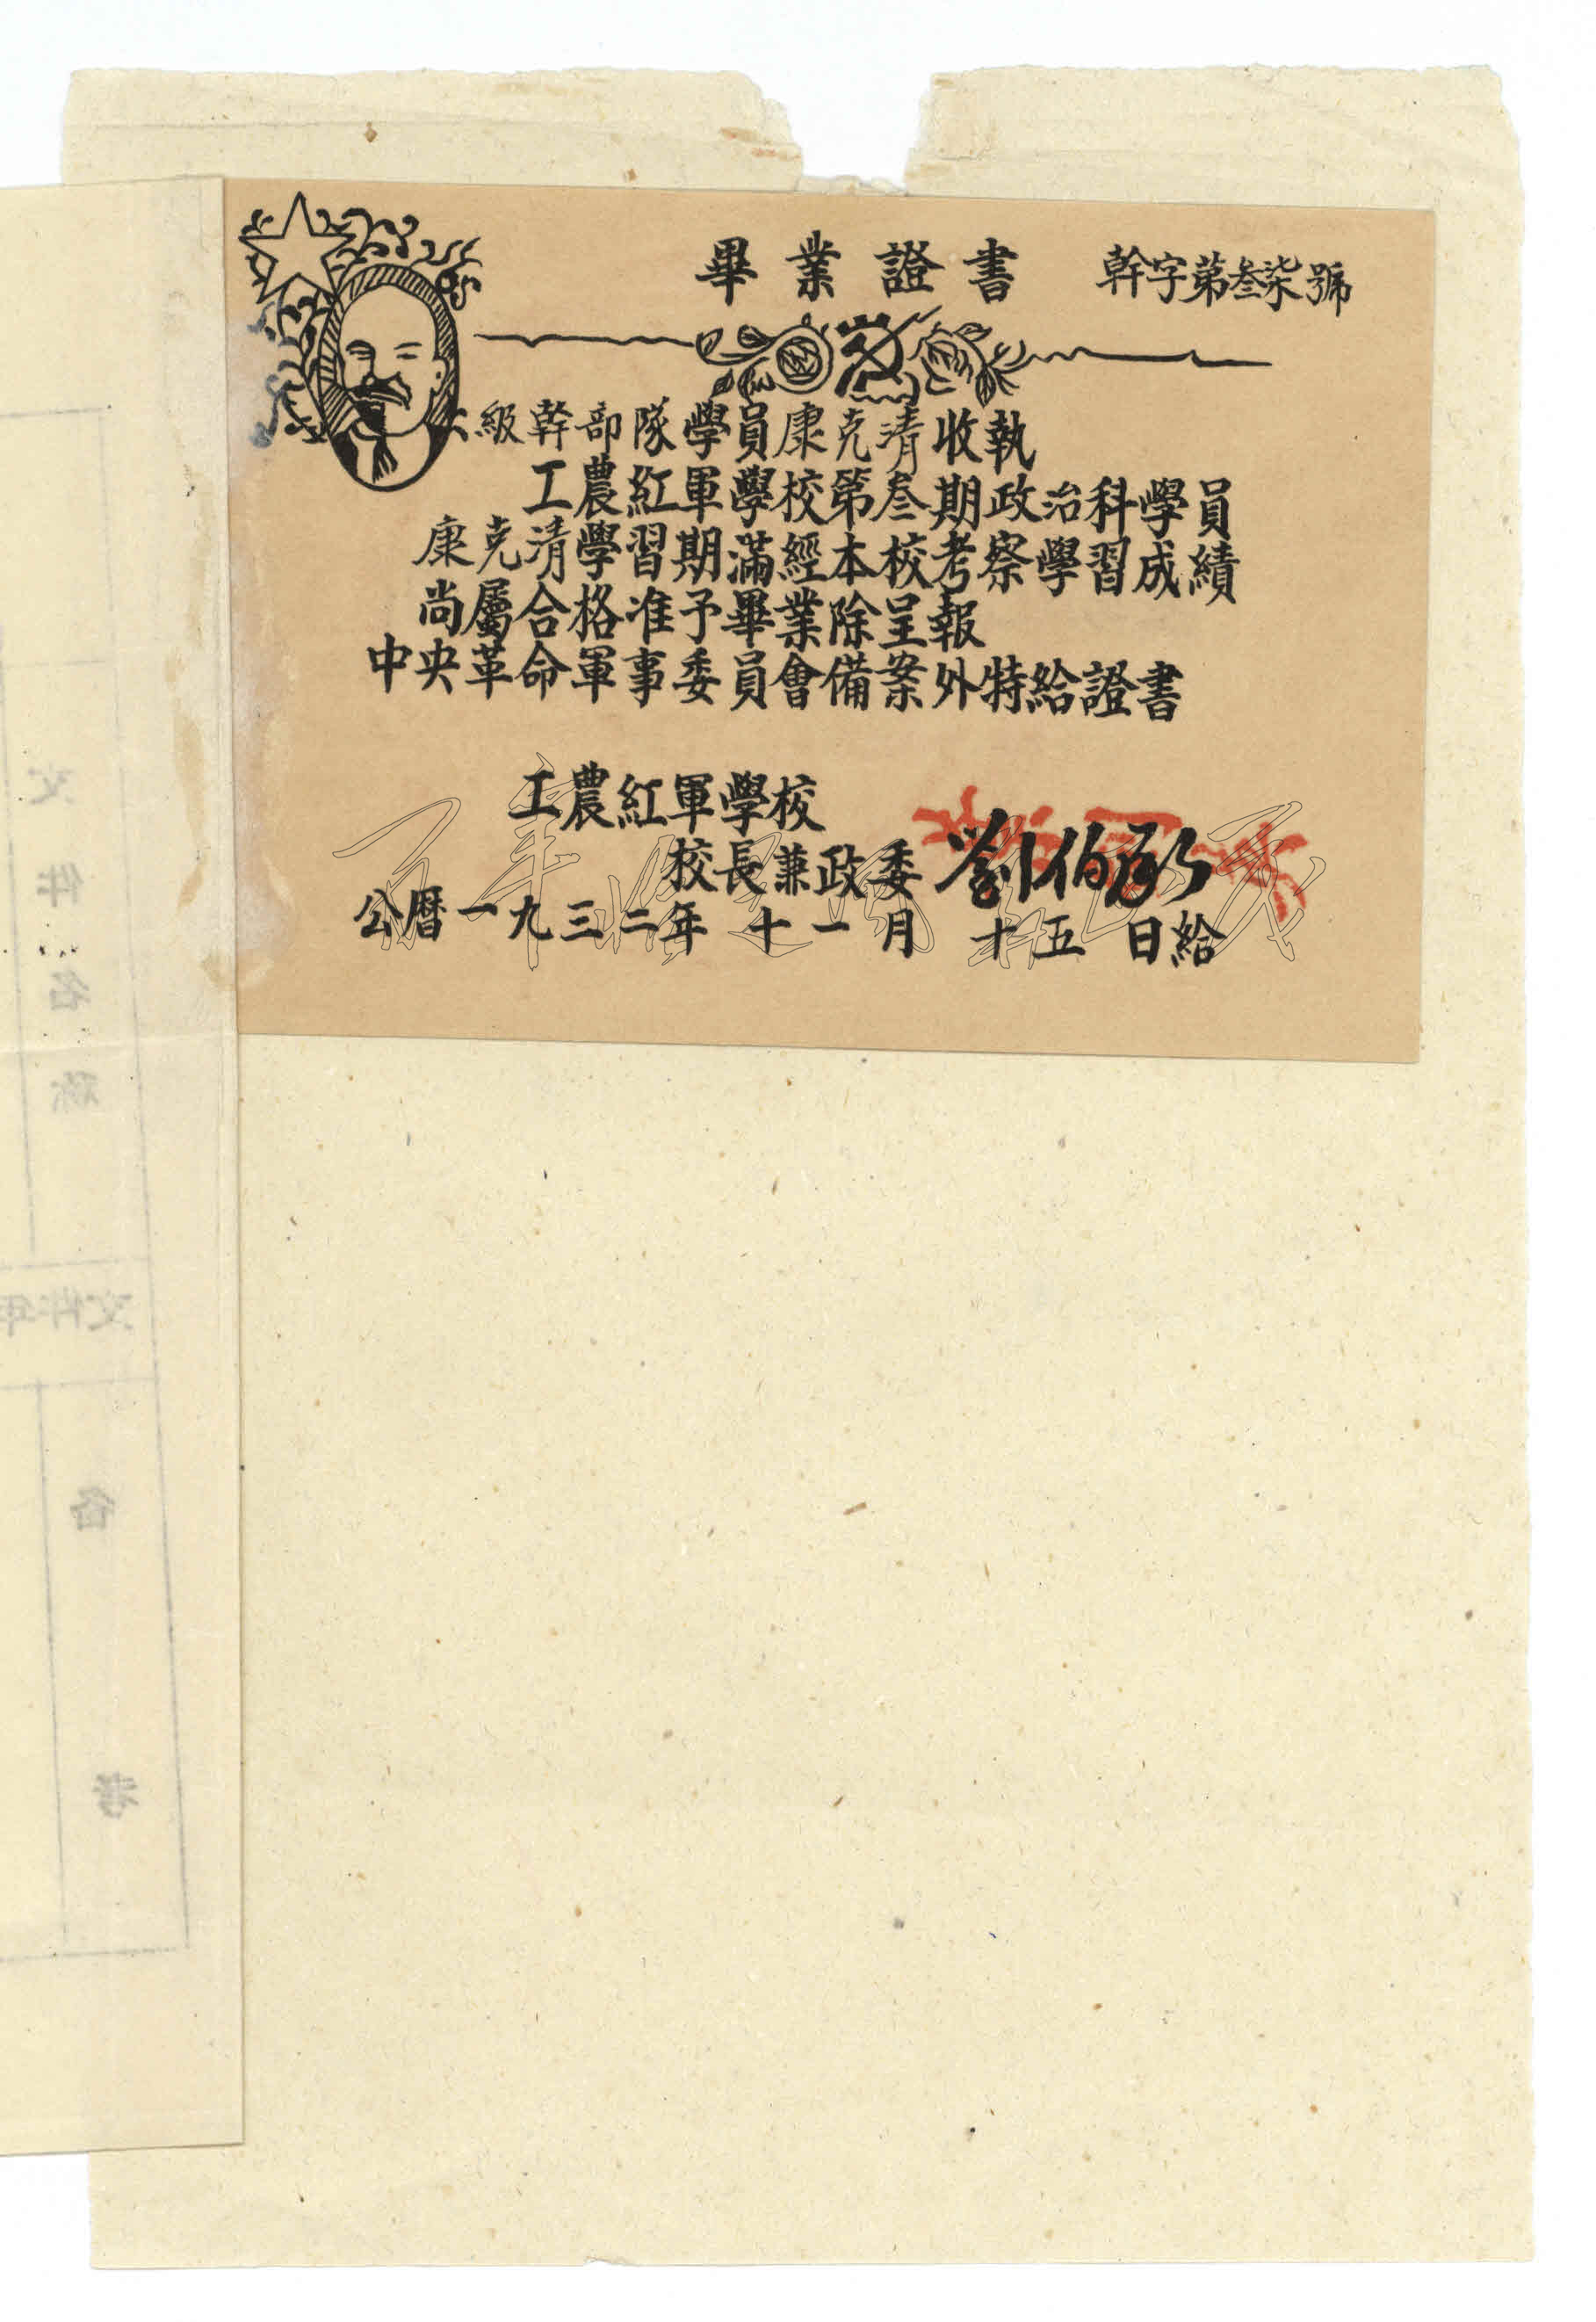 畢業證書
幹字第叁柒號
級幹部隊學員康克清收執
工農紅軍學校第叁期政治科學員
康克清學習期滿經本校考察學習成績
尚屬合格准予畢業除呈報
中央革命軍事委員會備案外特給證書
工農紅軍學校
校長兼政委 劉伯承
公曆一九三二年 十一月 十五 日給
文件名称
文件年
备
考